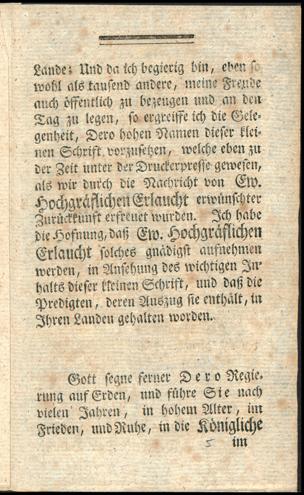 Lande: Und da ich begierig bin, eben so
wohl als tausend andere, meine Freude
auch öffentlich zu bezeugen und an den
Tag zu legen, so ergreiffe ich die Gele-
genheit, Dero hohen Namen dieser klei-
nen Schrift vorzusetzen, welche eben zu
der Zeit unter der Druckerpresse gewesen,
als wir durch die Nachricht von Ew.
Hochgräflichen Erlaucht erwünschter
Zurückkunft erfreuet wurden. Ich habe
die Hofnung, daß Ew. Hochgräflichen
Erlaucht solches gnädigst aufnehmen
werden, in Ansehung des wichtigen In-
halts dieser kleinen Schrift, und daß die
Predigten, deren Auszug sie enthält, in
Ihren Landen gehalten worden.
Gott segne ferner Dero Regie-
rung auf Erden, und führe Sie nach
vielen Jahren, in hohem Alter, im
Frieden, und Ruhe, in die Königliche
im